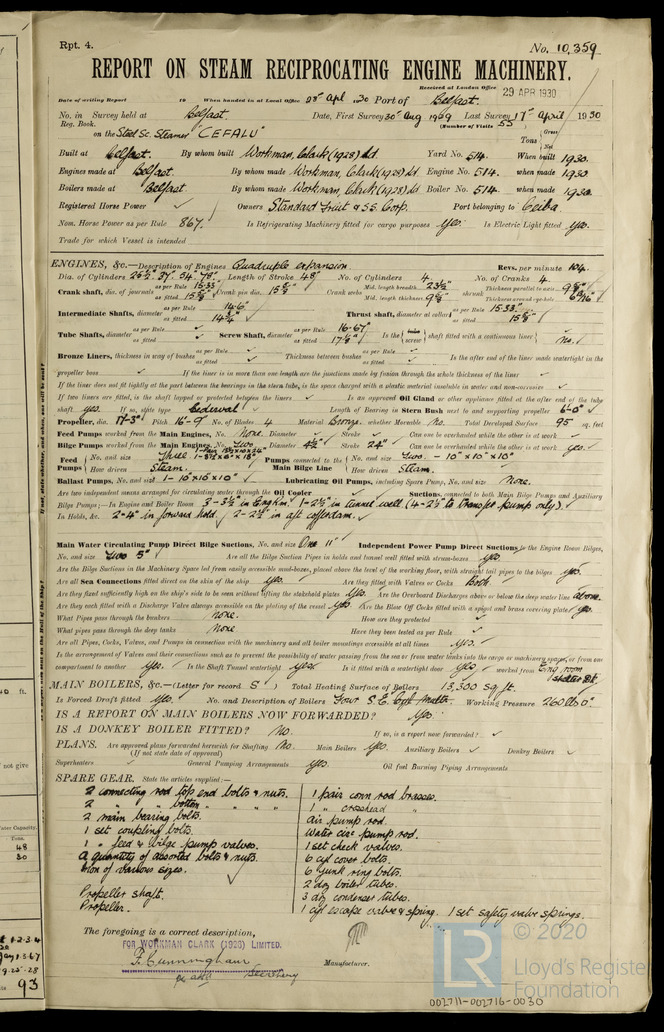 Rpt. 4.
No. 10,359
REPORT ON STEAM RECIPROCATING ENGINE MACHINERY.
Received at London Office 29 APR 1930
Date of writing Report 19 When handed in at Local Office 28 Apl 1930 Port of Belfast.
No. in Survey held at Belfast. Date, First Survey 30 Aug 1929 Last Survey 17 April 1930
Reg. Book. (Number of Visits 55
on the Steel Sc. Steamer "CEFALU" Tons Gross Net
Built at Belfast. By whom built Workman, Clark (1928) Ld Yard No. 514. When built 1930.
Engines made at Belfast. By whom made Workman, Clark (1928) Ld Engine No. 514. when made 1930
Boilers made at Belfast. By whom made Workman, Clark (1928) Ld Boiler No. 514. when made 1930
Registered Horse Power Owners Standard Fruit & S.S. Corp. Port belonging to Ceiba
Nom. Horse Power as per Rule 867. Is Refrigerating Machinery fitted for cargo purposes Yes. Is Electric Light fitted yes.
Trade for which Vessel is intended
ENGINES, &c.—Description of Engines Quadruple expansion Revs. per minute 104
Dia. of Cylinders 25½" 37" 54" 78" Length of Stroke 48" No. of Cylinders 4. No. of Cranks 4.
Crank shaft, dia. of journals as per Rule 15.33" as fitted 15⅝" Crank pin dia. 15⅝" Crank webs Mid. length breadth 23½" Mid. length thickness 9½" shrunk Thickness parallel to axis Thickness around eye-hole
Intermediate Shafts, diameter as per Rule 14.6" as fitted 14¾" Thrust shaft, diameter at collars as per Rule 15.33" as fitted 15⅝"
Tube Shafts, diameter as per Rule as fitted Screw Shaft, diameter as per Rule 16.67" as fitted 17⅛" Is the tube screw shaft fitted with a continuous liner no.
Bronze Liners, thickness in way of bushes as per Rule as fitted Thickness between bushes as per Rule as fitted Is the after end of the liner made watertight in the
propeller boss If the liner is in more than one length are the junctions made by fusion through the whole thickness of the liner
If the liner does not fit tightly at the part between the bearings in the stern tube, is the space charged with a plastic material insoluble in water and non-corrosive
If two liners are fitted, is the shaft lapped or protected between the liners Is an approved Oil Gland or other appliance fitted at the after end of the tube
shaft yes. If so, state type Cedervall Length of Bearing in Stern Bush next to and supporting propeller 6'-0"
Propeller, dia. 17'-3" Pitch 16'-9" No. of Blades 4 Material Bronze. whether Moveable No. Total Developed Surface 95 sq. feet
Feed Pumps worked from the Main Engines, No. None. Diameter Stroke Can one be overhauled while the other is at work
Bilge Pumps worked from the Main Engines, No. Two. Diameter 4½" Stroke 24" Can one be overhauled while the other is at work yes.
Feed Pumps No. and size Three How driven Steam. Pumps connected to the Main Bilge Line No. and size Two. - 10" x 10" x 10" How driven Steam.
Ballast Pumps, No. and size 1- 10" x 10" x 10" Lubricating Oil Pumps, including Spare Pump, No. and size none.
Are two independent means arranged for circulating water through the Oil Cooler Suctions, connected to both Main Bilge Pumps and Auxiliary
Bilge Pumps;—In Engine and Boiler Room 3 - 3½" in Eng Rm. 1-2½" in tunnel well (4-2½" to transfer pump only).
In Holds, &c. 2-4" in forward hold. 2-2½" in aft cofferdam.
Main Water Circulating Pump Direct Bilge Suctions, No. and size One 11" Independent Power Pump Direct Suctions to the Engine Room Bilges,
No. and size Two 5" Are all the Bilge Suction Pipes in holds and tunnel well fitted with strum-boxes yes.
Are the Bilge Suctions in the Machinery Space led from easily accessible mud-boxes, placed above the level of the working floor, with straight tail pipes to the bilges yes.
Are all Sea Connections fitted direct on the skin of the ship yes. Are they fitted with Valves or Cocks Both.
Are they fixed sufficiently high on the ship's side to be seen without lifting the stokehold plates Yes. Are the Overboard Discharges above or below the deep water line above.
Are they each fitted with a Discharge Valve always accessible on the plating of the vessel yes. Are the Blow Off Cocks fitted with a spigot and brass covering plate yes.
What Pipes pass through the bunkers none. How are they protected
What pipes pass through the deep tanks none Have they been tested as per Rule
Are all Pipes, Cocks, Valves, and Pumps in connection with the machinery and all boiler mountings accessible at all times Yes.
Is the arrangement of Valves and their connections such as to prevent the possibility of water passing from the sea or from water tanks into the cargo or machinery spaces, or from one
compartment to another Yes. Is the Shaft Tunnel watertight yes. Is it fitted with a watertight door Yes worked from Eng. room shelter Dk.
MAIN BOILERS, &c.—(Letter for record S) Total Heating Surface of Boilers 13,300 sq ft.
Is Forced Draft fitted Yes. No. and Description of Boilers Four S.E. Cyl. Multi. Working Pressure 260 lbs □".
IS A REPORT ON MAIN BOILERS NOW FORWARDED? Yes.
IS A DONKEY BOILER FITTED? No. If so, is a report now forwarded?
PLANS. Are approved plans forwarded herewith for Shafting No. Main Boilers Yes. Auxiliary Boilers Donkey Boilers
(If not state date of approval)
Superheaters General Pumping Arrangements Yes. Oil fuel Burning Piping Arrangements
SPARE GEAR. State the articles supplied:—
2 connecting rod top end bolts & nuts.
2 " " bottom " " " "
2 main bearing bolts.
1 set coupling bolts.
1 " feed & bilge pump valves.
A quantity of assorted bolts & nuts.
Iron of various sizes.
Propeller shaft.
Propeller.
1 pair conn rod brasses.
1 " crosshead "
Air pump rod.
Water circ pump rod.
1 set check valves.
6 cyl cover bolts.
6 junk ring bolts.
2 doz boiler tubes.
3 doz condenser tubes.
1 cyl escape valve & spring. 1 set safety valve springs.
The foregoing is a correct description,
FOR WORKMAN CLARK (1928) LIMITED.
F. Cunningham
Secretary
Manufacturer.
© 2020
LR
Lloyd's Register
Foundation
002711-002716-0030
not give
Water Capacity.
Tons.
48
30
93